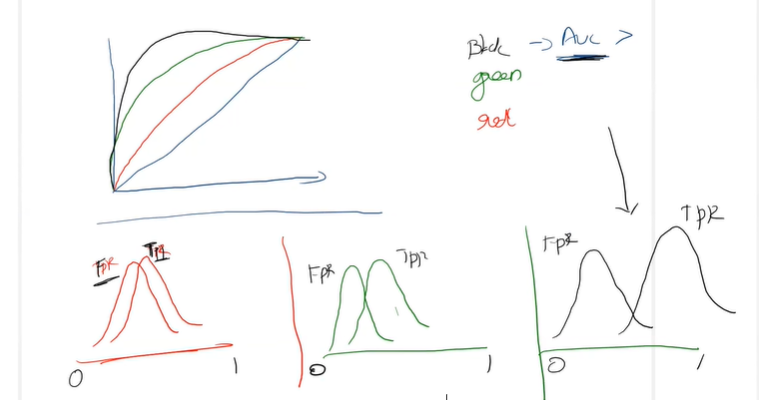 Black → AUC >
green
red
FPR TPR
0 1
FPR TPR
0 1
FPR TPR
0 1